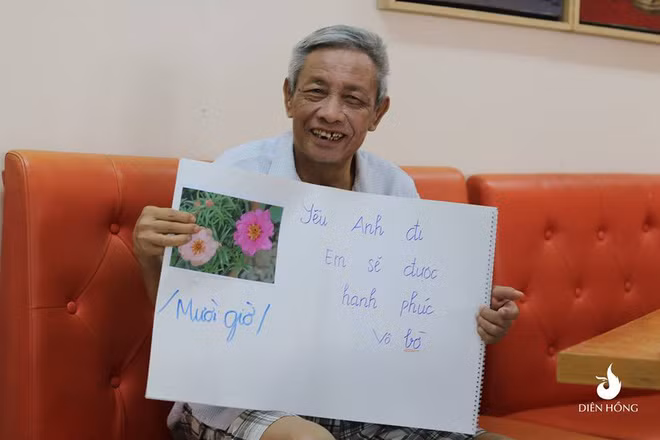 Yêu Anh đi
Em sẽ được
hạnh phúc
Vô bờ
/Mười giờ/
DIÊN HỒNG